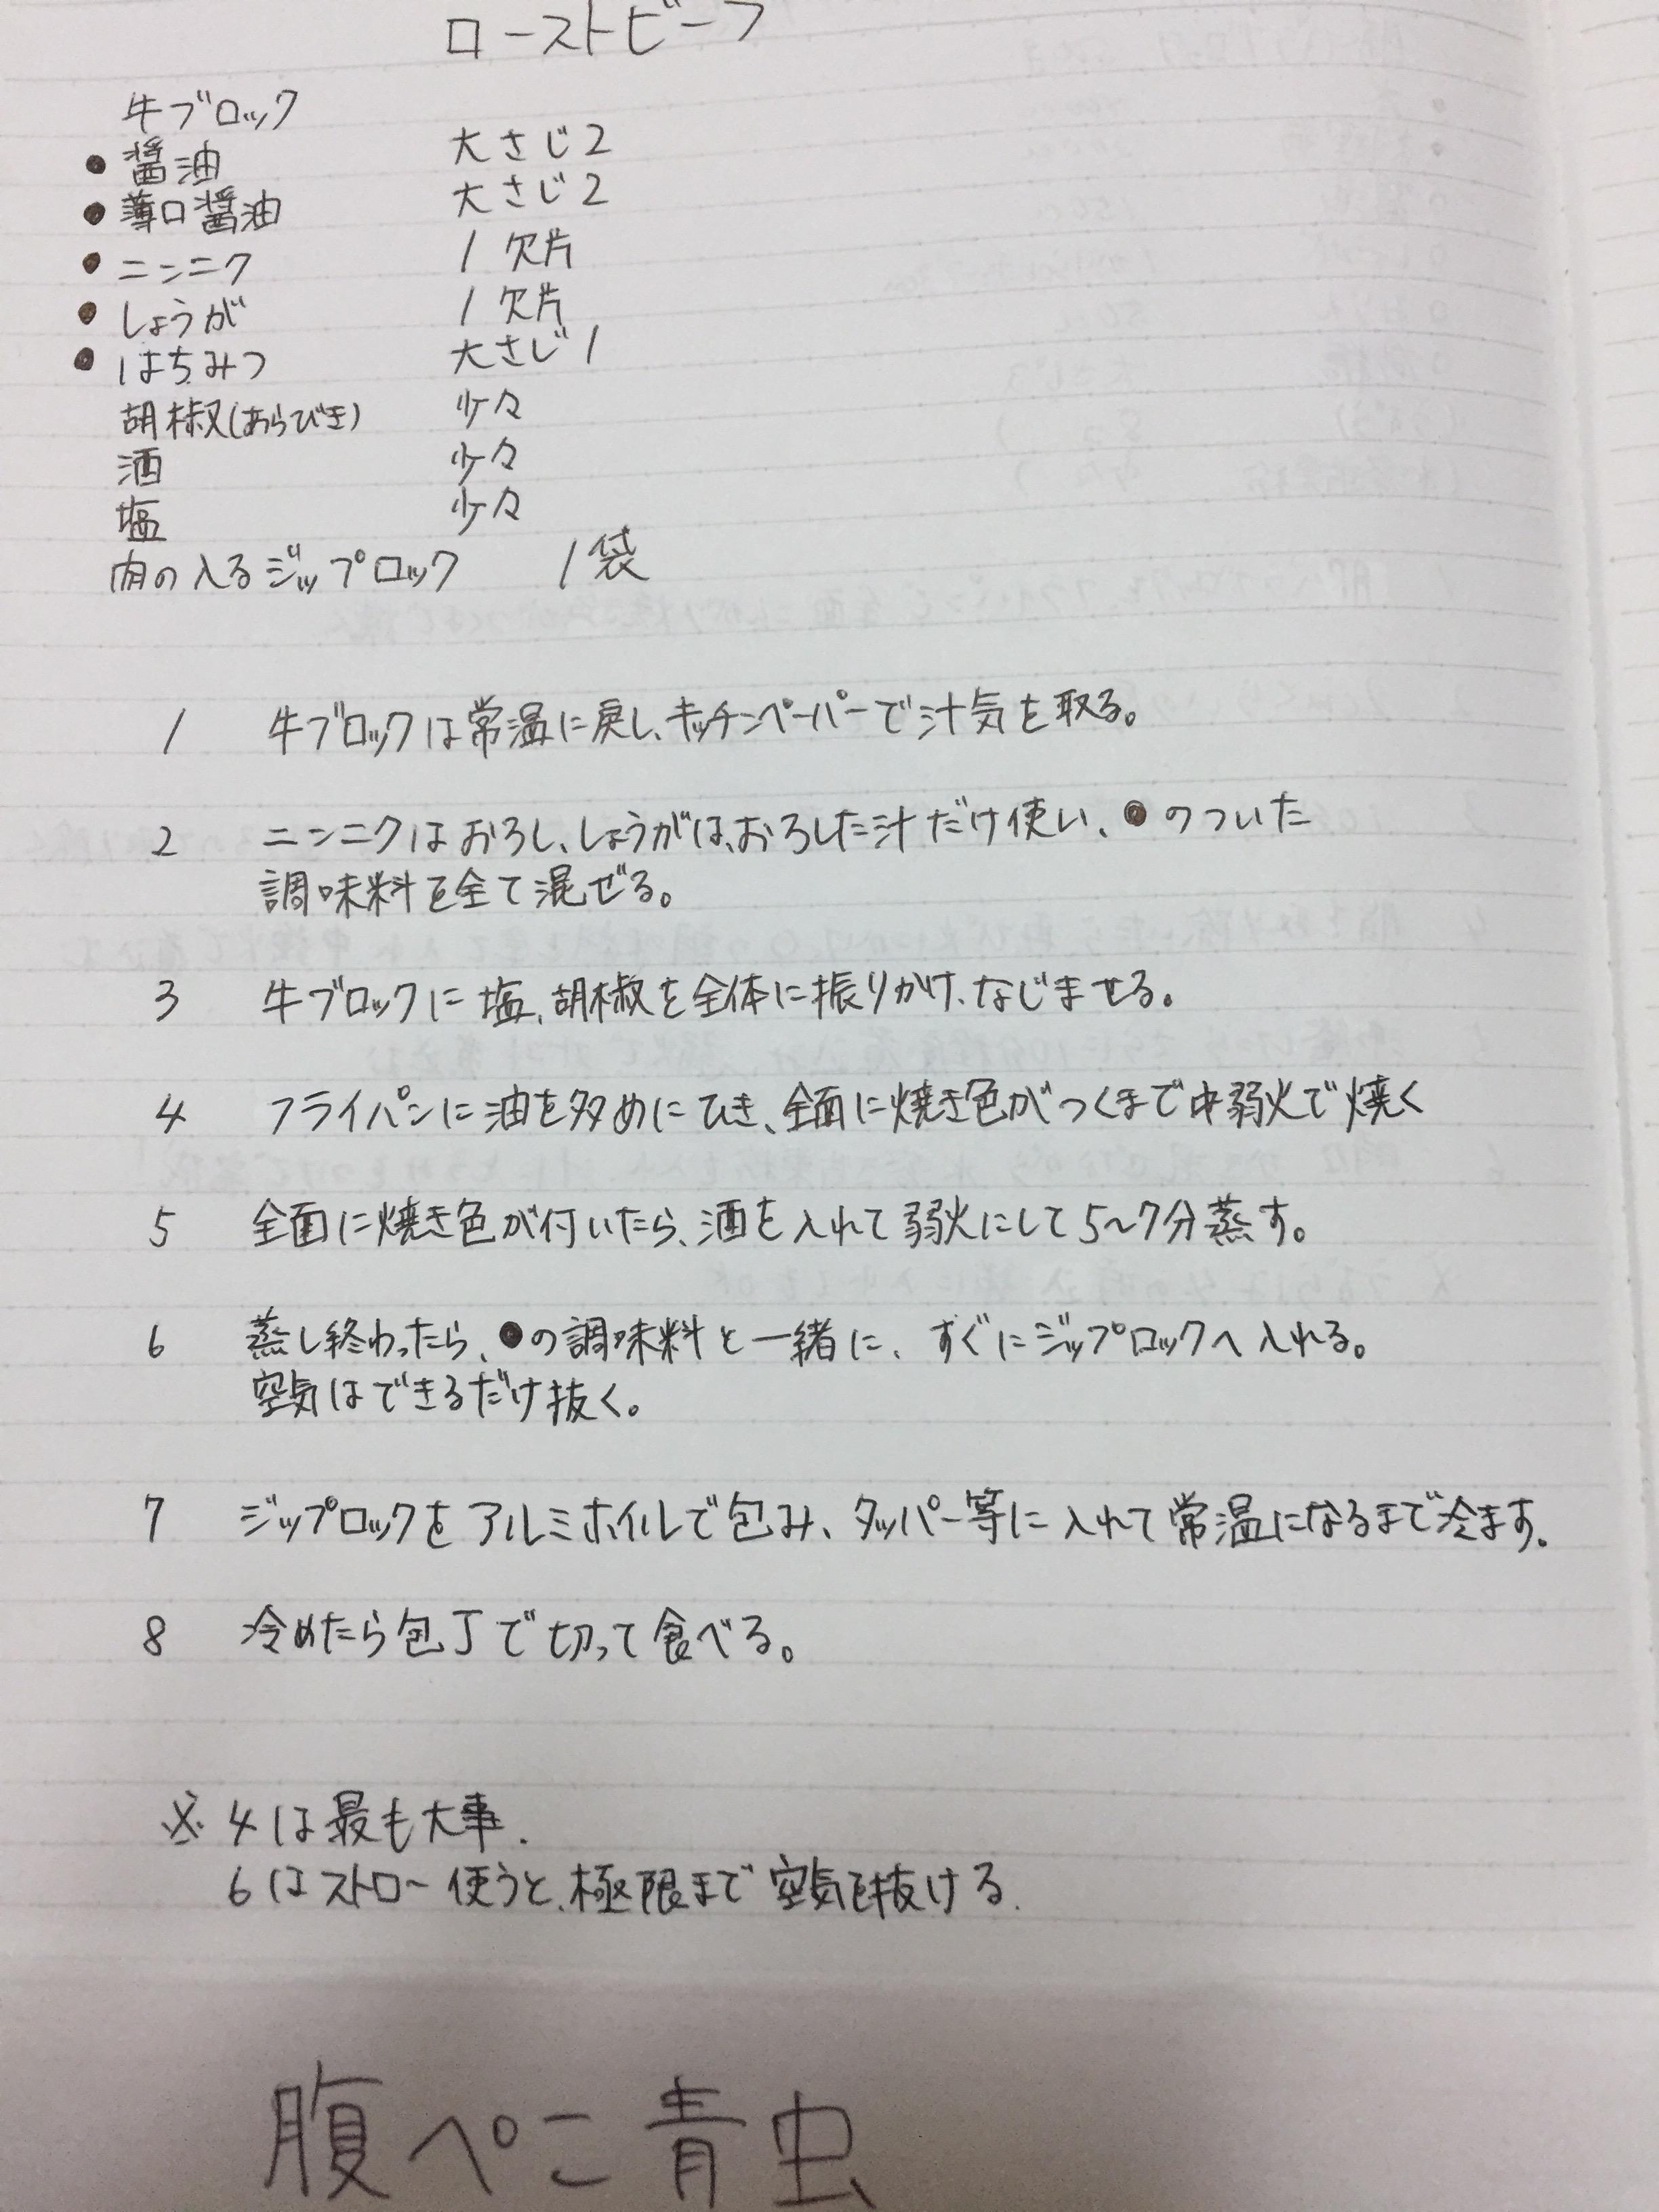 ローストビーフ
牛ブロック
●醤油 大さじ2
●薄口醤油 大さじ2
●ニンニク 1欠片
●しょうが 1欠片
●はちみつ 大さじ1
胡椒(あらびき) 少々
酒 少々
塩 少々
肉の入るジップロック 1袋
1 牛ブロックは常温に戻し、キッチンペーパーで汁気を取る。
2 ニンニクはおろし、しょうがは、おろした汁だけ使い、●のついた
調味料を全て混ぜる。
3 牛ブロックに塩、胡椒を全体に振りかけ、なじませる。
4 フライパンに油を多めにひき、全面に焼き色がつくまで中弱火で焼く
5 全面に焼き色が付いたら、酒を入れて弱火にして5〜7分蒸す。
6 蒸し終わったら、●の調味料と一緒に、すぐにジップロックへ入れる。
空気はできるだけ抜く。
7 ジップロックをアルミホイルで包み、タッパー等に入れて常温になるまで冷ます。
8 冷めたら包丁で切って食べる。
※ 4は最も大事.
6はストロー使うと、極限まで空気を抜ける.
腹ぺこ青虫